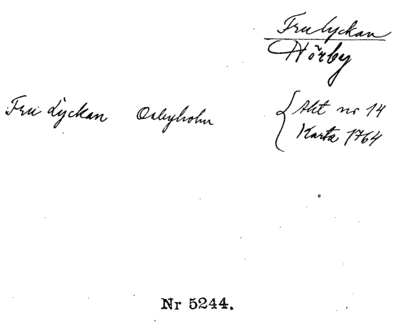 Frulyckan
Hörby
Fru Lyckan Osbyholm { Akt nr 14
Karta 1764
Nr 5244.